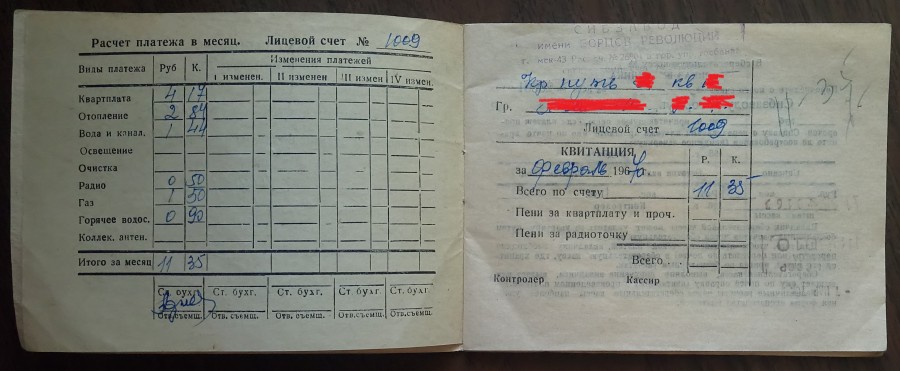 Расчет платежа в месяц. Лицевой счет № 1009
Виды платежа Руб К. Изменения платежей
I изменен. II изменен. III измен IV измен.
Квартплата 4 17
Отопление 2 84
Вода и канал. 1 44
Освещение
Очистка
Радио 0 50
Газ 1 50
Горячее водос. 0 90
Коллек. антен.
Итого за месяц 11 35
Ст. бухг. Ст. бухг. Ст. бухг. Ст. бухг. Ст. бухг.
Отв.съемщ. Отв. съемщ. Отв. съемщ. Отв. съемщ. Отв. съемщ.
СИБЗАВОД
имени БОРЦОВ РЕВОЛЮЦИИ
Кр путь кв
Гр.
Лицевой счет 1009
КВИТАНЦИЯ Р. К.
за февраль 196
Всего по счету 11 35
Пени за квартплату и проч.
Пени за радиоточку
Всего
Контролер Кассир